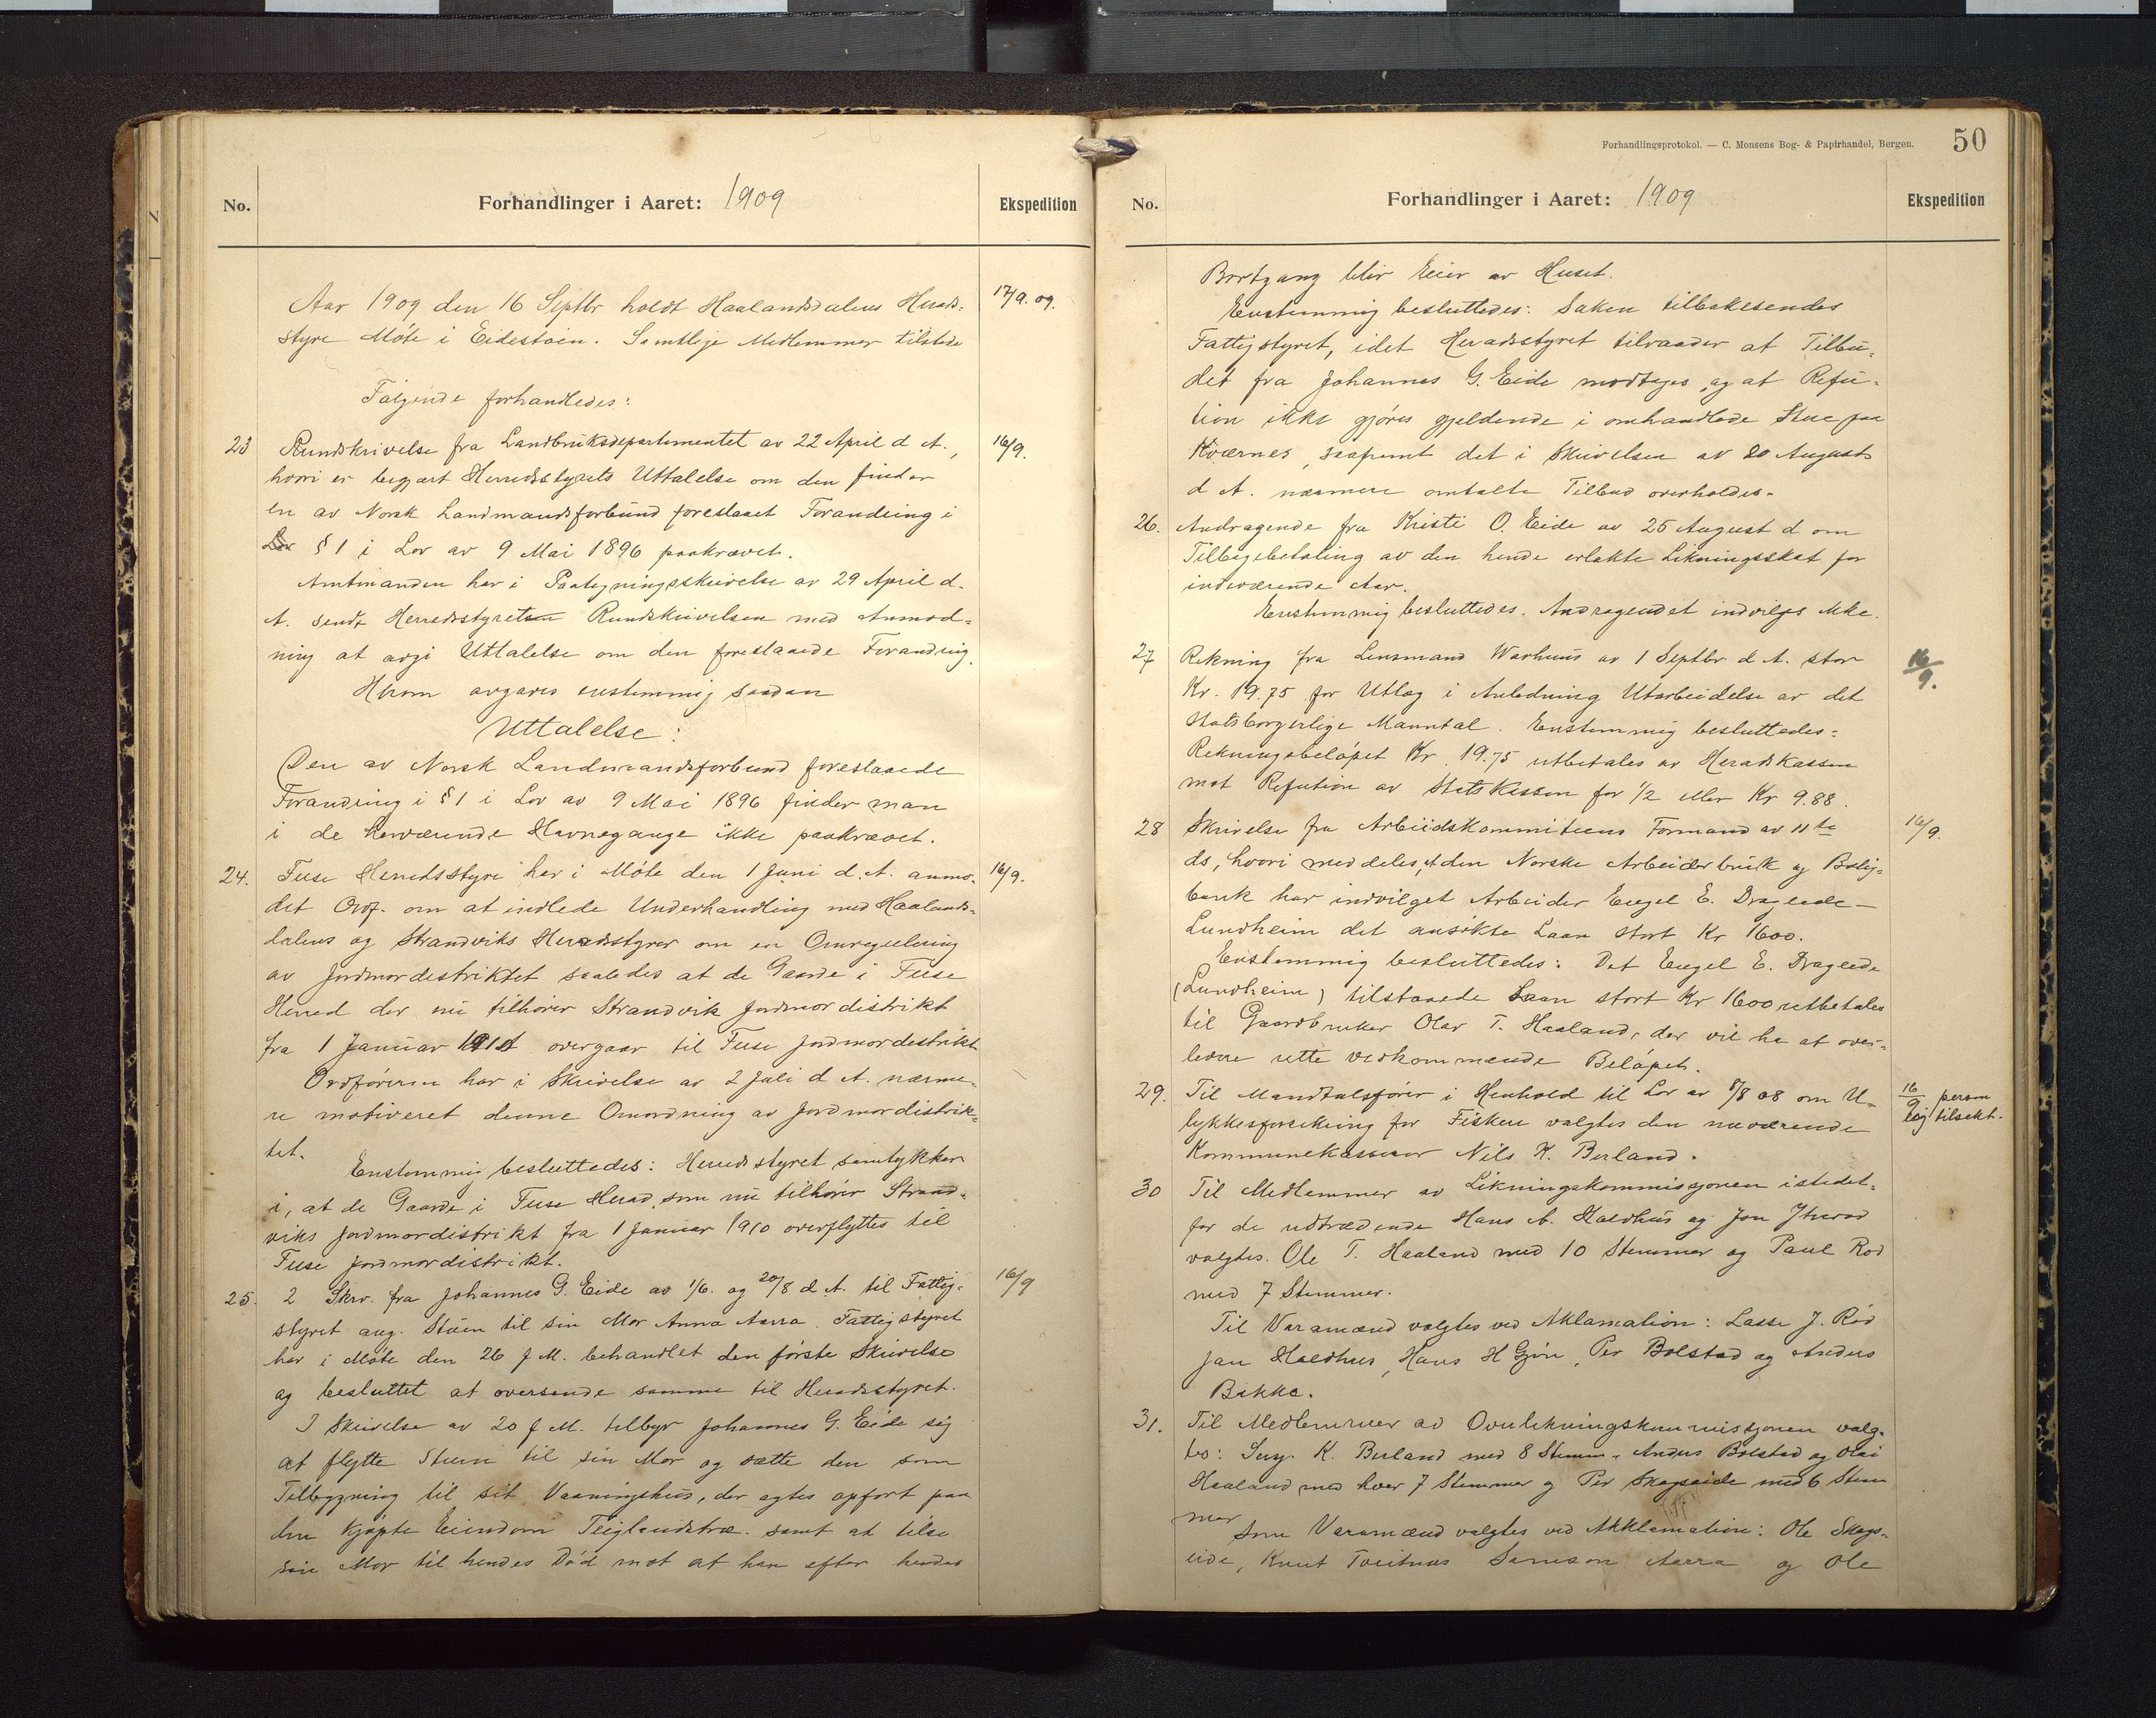 No.
Forhandlinger i Aaret: 1909
Ekspedition
Aar 1909 den 16 Septbr holdt Haalandsdalens Herads-
styre Møte i Eidestøen. Samtlige Medlemmer tilstede
17/9. 09.
Følgende forhandledes:
23 Rundskrivelse fra Landbruksdepartementet av 22 April d A.,
16/9.
hvori er begjært Herredsstyrets Uttalelse om den finder
en av Norsk Landmandsforbund foreslaaet Forandring i
§ 1 i Lov av 9 Mai 1896 paakrævet.
Amtmanden har i Paategningsskrivelse av 29 April d.
A. sendt Herredsstyret Rundskrivelsen med Anmod-
ning at avgi Uttalelse om den foreslaaede Forandring.
Herom avgaves enstemmig saadan
Uttalelse:
Den av Norsk Landmandsforbund foreslaaede
Forandring i § 1 i Lov av 9 Mai 1896 finder man
i de herværende Havnegange ikke paakrævet.
24. Fuse Herredsstyre har i Møte den 1 Juni d. A. anmo-
16/9.
det Ordf. om at indlede Underhandling med Haalands-
dalens og Strandviks Heradsstyrer om en Omregulering
av Jordmordestriktet saaledes at de Gaarde i Fuse
Herred der nu tilhører Strandvik Jordmordistrikt
fra 1 Januar 1910 overgaar til Fuse Jordmordestrikt
Ordføreren har i Skrivelse av 2 Juli d A. nærme-
re motiveret denne Omordning av Jordmordistrik-
tet.
Enstemmig besluttedes: Herredsstyret samtykker
i, at de Gaarde i Fuse Herad, som nu tilhører Strand-
viks Jordmordistrikt fra 1 Januar 1910 overflyttes til
Fuse Jordmordistrikt.
25. 2 Skrv. fra Johannes G. Eide av 1/6. og 20/8 d A. til Fattig-
16/9
styret ang. Stuen til sin Mor Anna Aarra. Fattigstyret
har i Møte den 26 f M. behandlet den første Skrivelse
og besluttet at oversende samme til Heradsstyret.
I Skrivelse av 20 f M. tilbyr Johannes G. Eide sig
at flytte Stuen til sin Mor og sætte den som
Tilbygning til sit Vaaningshus, der agtes opført paa
den kjøpte Eiendom Teiglandstræ. samt at tilse
sin Mor til hendes Død mot at han efter hendes
Forhandlingsprotokol. — C. Monsens Bog- & Papirhandel, Bergen.
50
No.
Forhandlinger i Aaret: 1909
Ekspedition
Bortgang blir Eier av Huset.
Enstemmig besluttedes: Saken tilbakesendes
Fattigstyret, idet Heradsstyret tilraader at Tilbu-
det fra Johannes G. Eide modtages, og at Refu-
tion ikke gjøres gjeldende i omhandlede Stue paa
Kværnes, saafremt det i Skrivelsen av 20 August
d A. nærmere omtalte Tilbud overholdes.
26. Andragende fra Kristi O. Eide av 25 August d om
Tilbagebetaling av den hende erlakte Likningsskat for
indeværende Aar.
Enstemmig besluttedes. Andragendet indvilges ikke.
27 Rekning fra Lensmand Warhuus av 1 Septbr d A. stor
16/9.
Kr. 19.75 for Utlæg i Anledning Utarbeidelse av det
Statsborgerlige Manntal. Enstemmig besluttedes:
Rekningsbeløpet Kr. 19.75 utbetales av Heradskassen
mot Refution av Statskassen for 1/2 eller Kr 9.88.
28 Skrivelse fra Arbeidskommiteens Formand av 11te
16/9.
ds, hvori meddeles, at den Norske Arbeiderbruk og Bolig-
bank har indvilget Arbeider Engel E. Drageide-
Lundheim det ansøkte Laan stort Kr 1600.
Enstemmig besluttedes: Det Engel E. Drageide
(Lundheim) tilstaaede Laan stort Kr 1600 utbetales
til Gaardbruker Olav T. Haaland, der vil ha at over-
levere rette vedkommende Beløpet.
29. Til Mandtalsfører i Henhold til Lov av 8/8 08 om U-
16/9 person
lig tilsekt.
lykkesforsikring for Fiskere valgtes den nuværende
Kommunekasserer Nils K. Berland.
30 Til Medlemmer av Likningskommissjonen istedet-
for de udtrædende Hans A. Holdhus og Jon Ytrerød
valgtes. Ole T. Haaland med 10 Stemmer og Paul Rød
med 7 Stemmer.
Til Varamænd valgtes ved Aklamation: Lasse J. Rød
Jan Holdhus, Hans H Gjøn, Per Bolstad og Anders
Bakke.
31. Til Medlemmer av Overlikningskommissjonen valg-
tes: K. Berland med 8 Stemm. Anders Bolstad og Olai
Haaland med hver 7 Stemmer og Per Skogseide med 6 Stem
mer
Som Varamænd valgtes ved Akklamation: Ole Skogs-
eide, Knut Tveitnes Samson Aarra og Ole